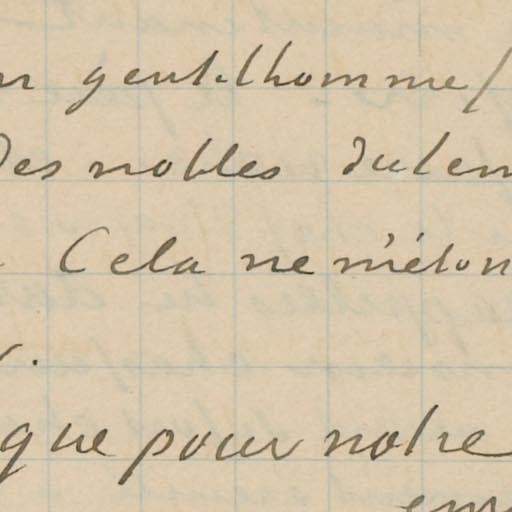 gentilhomme/
des nobles du tem
Cela ne m'éton
que pour notre